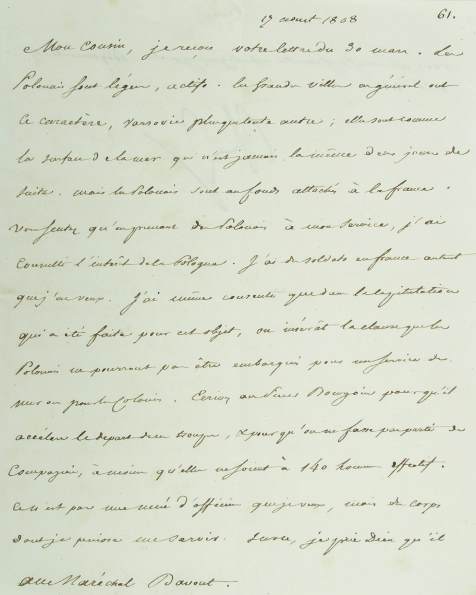 17 avril 1808 61.
Mon Cousin, je reçois votre lettre du 30 mars. Les
Polonais sont légers, actifs. les Grandes Villes en général ont
Ce caractère, varsovie plus que toute autre ; elles sont comme
la surface de la mer qui n'est jamais la même deux jours de
suite. mais les Polonais sont au fonds attachés à la france.
Vous sentez qu'en prenant des Polonais à mon service, j'ai
Consulté l'intérêt de la Pologne. J'ai des soldats en france autant
que j'en veux. J'ai même consenti que dans la capitulation
qui a été faite pour cet objet, on insérât la clause que les
Polonais ne pourront pas être embarqués pour un service de
mer ou pour les Colonies. Ecrivez au Sieur Bourgoin pour qu'il
accélère le départ de ces troupes, & pour qu'on ne fasse pas partir de
Compagnies, à moins qu'elles ne soient à 140 hommes effectifs.
Ce n'est pas une nuée d'officiers que je veux, mais des corps
dont je puisse me servir. Sur ce, je prie Dieu qu'il
au Maréchal Davout.